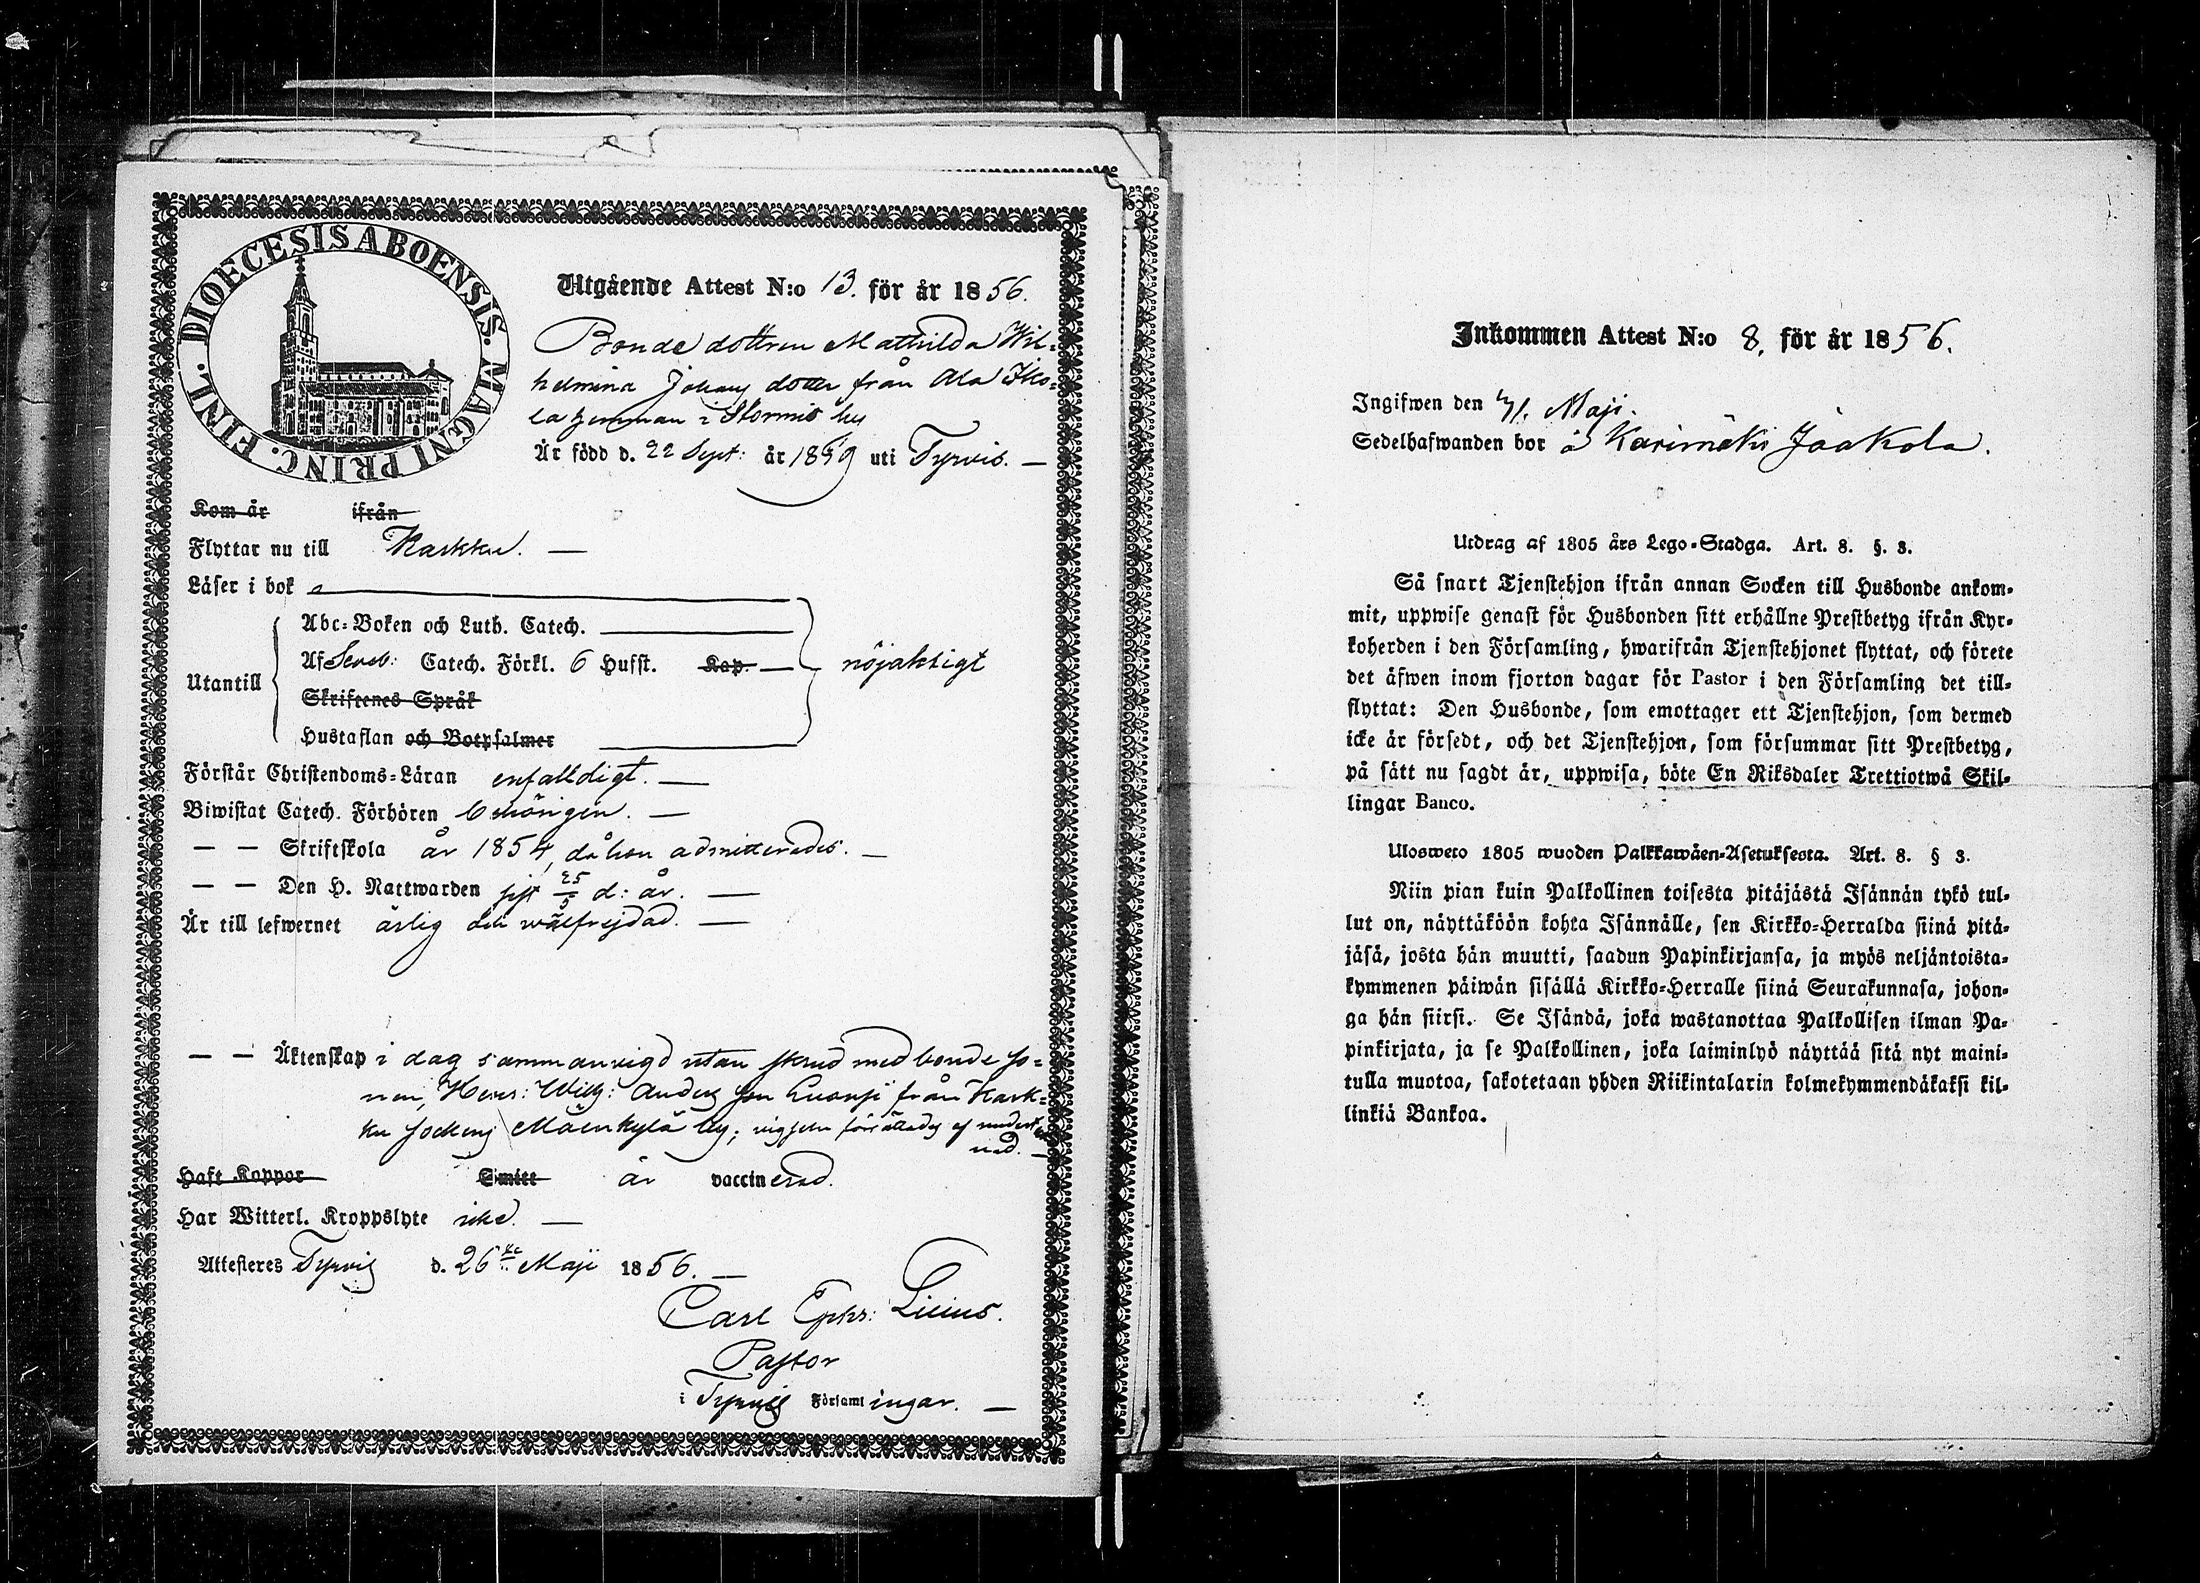 DIOECESIS ABOENSIS. MAGNI PRINC. FINL.
Utgående Attest N:o 13. för år 1856.
Bonde dottren Mathilda Wil-
helmina Johans dotter från Ala Iko-
la hemman i Stormis by
Är född d. 22 Sept: år 1839 uti Tyrvis. —
Kom år ifrån
Flyttar nu till Karkku. —
Läser i bok
Abc-Boken och Luth. Catech.
Af Sveb: Catech. Förkl. 6 Hufst. Kap. — nöjaktigt
Utantill
Skriftenes Språk
Hustaflan och Botpsalmer
Förstår Christendoms-Läran enfalldigt. —
Biwistat Catech. Förhören behörigen. —
— — Skriftskola år 1854, då hon admitterades. —
— — Den H. Nattwarden sist 25/5 d: år. —
Är till lefwernet ärlig och wälfrejdad. —
— — Äktenskap i dag sammanvigd utan skrud med bonde so-
nen, Herrs: Wilh: Anders son Cuonsi från Kark-
ku sockens Mäenkylä by; vigseln förrättades af underteck
nad. —
Haft Koppor Smitt är vaccinerad.
Har Witterl. Kroppslyte icke. —
Attesteres Tyrvis d. 26te Maji 1856. —
Carl Ephr: Lilius.
Pastor
i Tyrvis Församlingar. —
Inkommen Attest N:o 8. för år 1856.
Ingifwen den 31. Maji.
Sedelhafwanden bor å Karimäki Jaakola.
Utdrag af 1805 års Lego-Stadga. Art. 8. §. 3.
Så snart Tjenstehjon ifrån annan Socken till Husbonde ankom-
mit, uppwise genast för Husbonden sitt erhållne Prestbetyg ifrån Kyr-
koherden i den Församling, hwarifrån Tjenstehjonet flyttat, och förete
det äfwen inom fjorton dagar för Pastor i den Församling det till-
flyttat: Den Husbonde, som emottager ett Tjenstehjon, som dermed
icke är försedt, och det Tjenstehjon, som försummar sitt Prestbetyg,
på sätt nu sagdt är, uppwisa, böte En Riksdaler Trettiotwå Skil-
lingar Banco.
Ulosweto 1805 wuoden Palkkawäen-Asetuksesta. Art. 8. § 3.
Niin pian kuin Palkollinen toisesta pitäjästä Isännän tykö tul-
lut on, näyttäköön kohta Isännälle, sen Kirkko-Herralda siinä pitä-
jäsä, josta hän muutti, saadun Papinkirjansa, ja myös neljäntoista-
kymmenen päiwän sisällä Kirkko-Herralle siinä Seurakunnasa, johon-
ga hän siirsi. Se Isändä, joka wastanottaa Palkollisen ilman Pa-
pinkirjata, ja se Palkollinen, joka laiminlyö näyttää sitä nyt maini-
tulla muotoa, sakotetaan yhden Riikintalarin kolmekymmendäkaksi kil-
linkiä Bankoa.